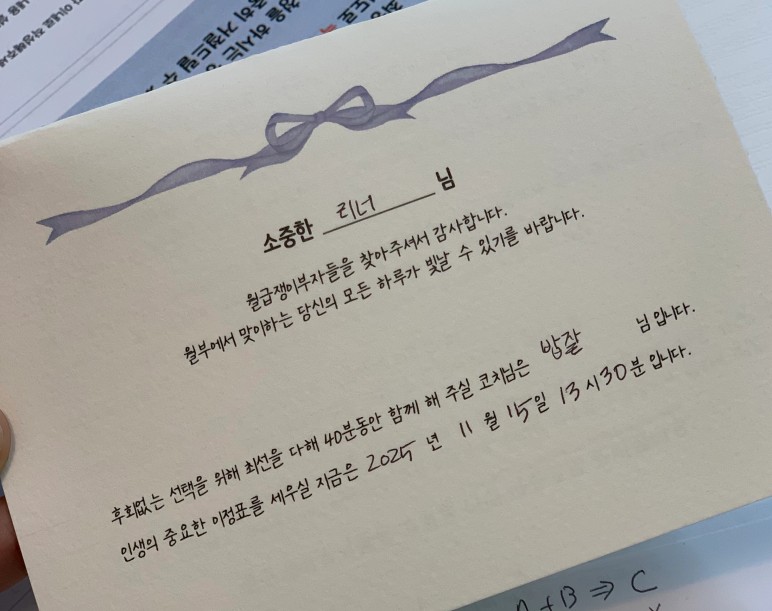 소중한 리너 님
월급쟁이부자들을 찾아주셔서 감사합니다.
월부에서 맞이하는 당신의 모든 하루가 빛날 수 있기를 바랍니다.
후회없는 선택을 위해 최선을 다해 40분동안 함께 해 주실 코치님은 밥잘 님 입니다.
인생의 중요한 이정표를 세우실 지금은 2025 년 11 월 15일 13 시 30분 입니다.
A + B ⇒ C